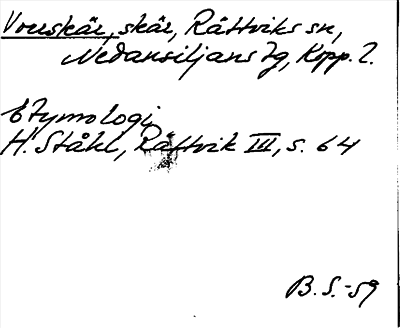 Vouskär, skär, Rättviks sn,
Nedansiljans tg, Kopp. l.
Etymologi
H. Ståhl, Rättvik III, s. 64
B. S. -59